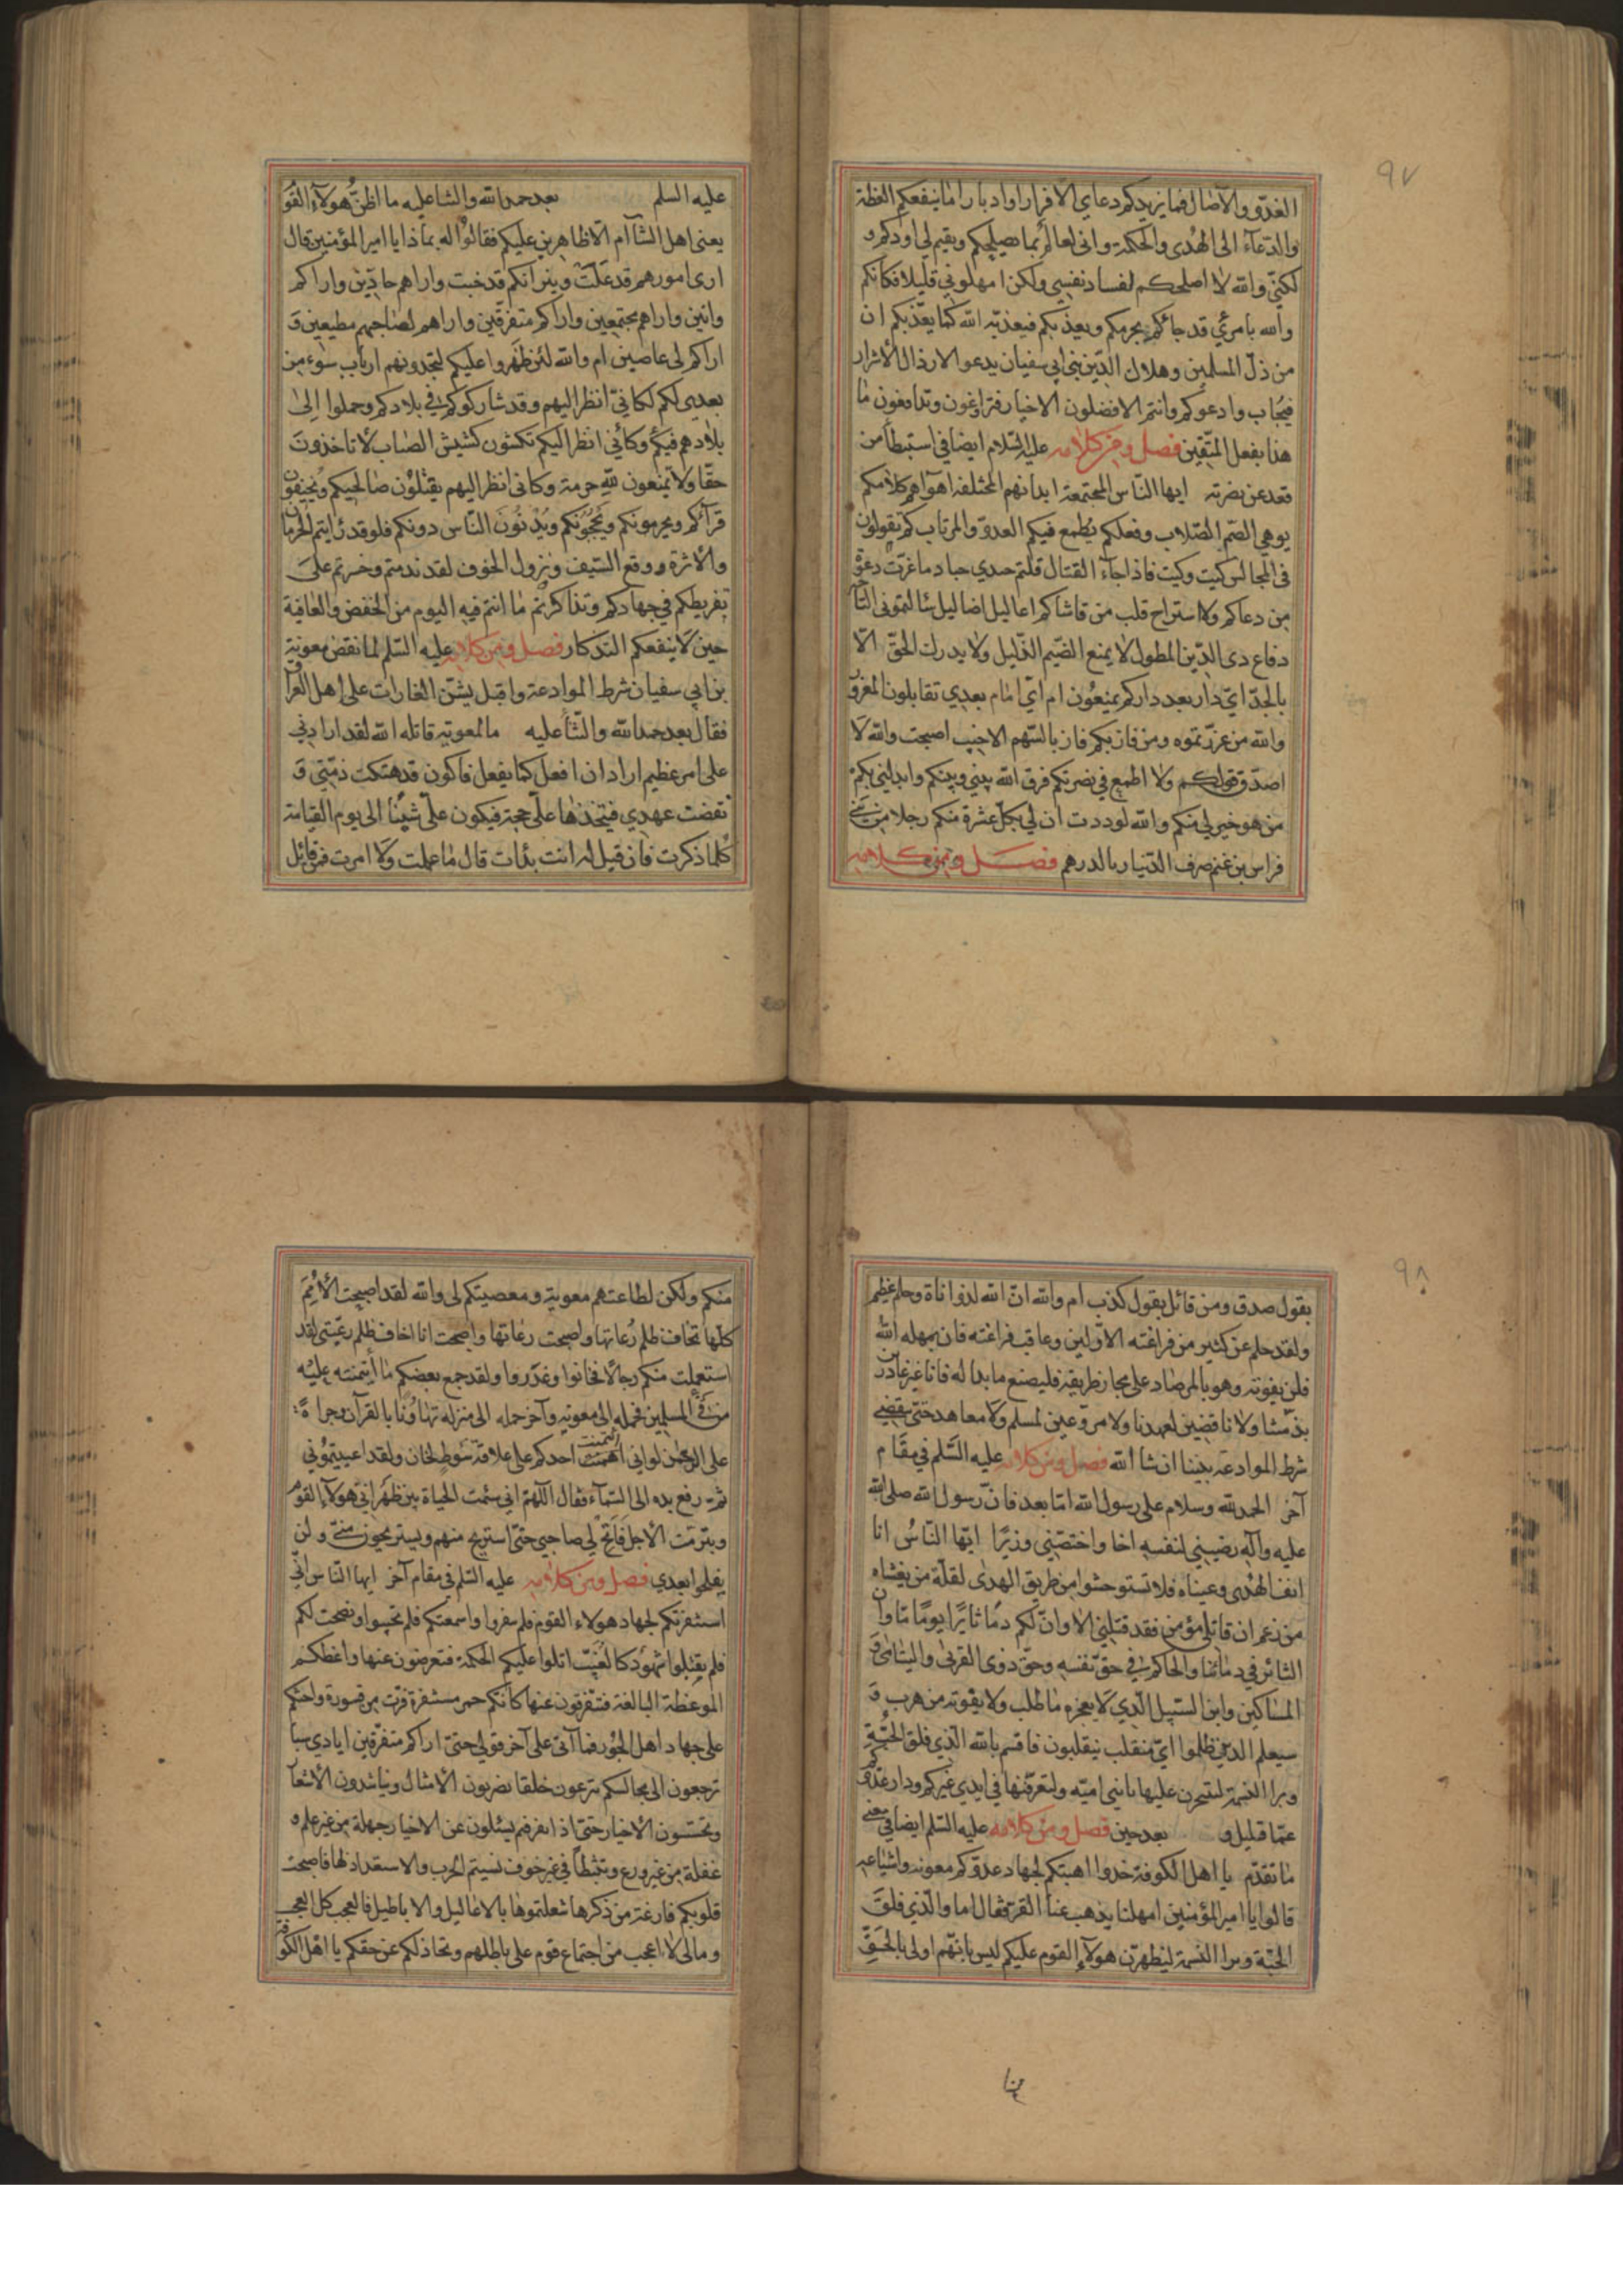 ٩٧
الغدوّ والآصال فما يزيدكم دعاي الا فرارا وادبارا اما ينفعكم العظة
والدّعاء الى الهُدى والحكمة وانى لعالم بما يصلحكم ويقيم لي اودكم و
لكنّي والله لا اصلحكم بفساد نفسي ولكن امهلوني قليلا فكانكم
والله بامرئ قد جائكم يحرمكم ويعذبكم فيعذبه الله كما يعذّبكم ان
من ذلّ المسلمين وهلاك الدّين بنى ابى سفيان يدعو الارذال الأشرار
فيجاب وادعوكم وانتم الافضلون الاخيار فتراوغون وتدافعون ما
هذا بفعل المتّقين فصل ومن كلامه عليه السّلام ايضا في استبطأ من
قعد عن نصرته ايها النّاس المجتمعة ابدانهم المختلفة اهوآؤهم كلامكم
يوهي الصّم الصّلاب وفعلكم يُطمع فيكم العدوّ والمرتاب كم تقولون
فى المجالس كيت وكيت فاذا جآء القتال قلتم حيدي حياد ما عزّت دعوة
من دعاكم ولا استراح قلب من قاشاكم اعاليل اضاليل سئالتمونى التأ
دفاع ذى الدّين المطول لا يمنع الضّيم الذّليل ولا يدرك الحقّ الّا
بالجدّ ايّ دار بعد داركم تمنعُون ام ايّ امام بعدي تقاتلون المغرور
والله من غررتموه ومن فاز بكم فاز بالسّهم الاخيب اصبحت والله لَا
اصدّق قولكم ولا اطمع في نصرتكم فرق الله بيني وبينكم وابدلنى بكم
من هو خير لي منكم والله لوددت ان لي بكلّ عشرة منكم رجلا من بني
فراس بن غنم صرف الدّينار بالدرهم فصل ومن كلامه
عليه السلم بعد حمد الله والثنا عليه ما اظنّ هولاء القو
يعنى اهل الشآم الّا ظاهرين عليكم فقالوا له بماذا يا امير المؤمنين قال
ارى امورهم قد عَلَت ونيرانكم قد خبت واراهم جادّين واراكم
وانين واراهم مجتمعين واراكم متفرّقين واراهم لصاحبهم مطيعين وَ
اراكم لى عاصين ام والله لئن ظهروا عليكم لتجدونهم ارباب سوء من
بعدى لكم لكانيّ انظر اليهم وقد شاركوكم في بلادكم وحملوا الىٰ
بلادهم فيئكم وكأني انظر اليكم تكشون كشيش الضّباب لا تاخذونَ
حقّا ولا تمنعون لله حرمة وكانى انظر اليهم يقتلون صالحيكم ويُخيفون
قرآئكم ويحرمونكم ويحجبُونكم ويُدنونَ النّاس دونكم فلو قد رايتم الحرمان
والأثرة ووقع السّيف ونزول الخوف لقد ندمتم وخسرتم علىَ
تفريطكم في جهادكم وتذاكرتم ما انتم فيه اليوم من الخفض والعافية
حين لا ينفعكم التذكار فصل ومن كلامه عليه السّلم لما نقض معوية
بن ابي سفيان شرط الموادعة واقبل يشنّ الغارات على اهل العرا
فقال بعد حمد الله والثنأ عليه ما لمعوية قاتله الله لقد ارادني
على امر عظيم اراد ان افعل كما يفعل فاكون قد هتكت ذمّتي وَ
نقضت عهدي فيتخذها علىّ حجة فيكون علىّ شينًا الى يوم القيامة
كلما ذكرت فان قيل له انت بدأت قال ما علمت ولا امرت فمن قائل
٩٨
يقول صدق ومن قائل يقول كذب ام والله انّ الله لذو اناة وحلم عظيم
ولقد حلم عن كثير من فراعنته الاوّلين وعاقب فراعنته فان يمهله الله
فلن يفوته وهو بالمرصاد على مجاز طريقه فليصنع ما بدا له فانا غير غادرين
بذمّتنا ولا ناقضين لعهدنا ولا مروّعين لمسلم ولا معاهد حتىّ ينقضى
شرط الموادعة بيننا ان شا الله فصل ومن كلامه عليه السّلم في مقَام
آخر الحمد لله وسلام على رسول الله امّا بعد فانّ رسول الله صلى الله
عليه وآله رضيني لنفسه اخا واختصّني وزيرًا ايّها النّاسُ انا
انف الهُدى وعيناه فلا تستوحشوا من طريق الهدىٰ لقلّة من يغشاه
من زعم ان قاتلى مؤمن فقد قتلنى الا وانّ لكم دمًا ثايرًا يومًا مّا وان
الثائر في دمائنا والحاكم في حقّ نفسه وحقّ ذوى القربىٰ واليتامىٰ وَ
المساكين وابن السّبيل الّذي لا يعجزه ما طلب ولا يفوته من هرب وَ
سيعلم الذين ظلموا ايّ منقلب ينقلبون فاقسم بالله الّذي فلق الحبّة
وبرا النسمة لتنتحرن عليها يا بنى اميّه ولتعرّفنها في ايدى غيركم ودار عدوّكم
عمّا قليل و بعد حين فصل ومن كلامه عليه السّلم ايضا في معنى
ما تقدّم يا اهل الكوفة خذوا اهبتكم لجهاد عدوّكم معوية واشياعه
قالوا يا امير المؤمنين امهلنا يذهب عنا القرّ فقال اما والّذي فلقَ
الحبّة وبرا النّسمة ليظهرن هولآء القوم عليكم ليس بانّهم اولى بالحَقّ
منكم ولكن لطاعتهم معوية ومعصيتكم لى والله لقد اصبحت الأمَم
كلّها تخاف ظلم رُعاتها واصبحت انا اخاف ظلم رعيّتى لقد
استعملت منكم رجالًا فخانوا وغدروا ولقد جمع بعضكم ما ائتمنته عليْه
من فئ المسلمين فحمله الى معوية وآخر حمله الى منزله تهاونًا بالقرآن وجراةً
على الرحمٰن لو انى ائتمنت احدكم على علاقة سَوط لخان ولقد اعييتمُوني
ثم رفع يده الى السّمآء فقال اللّهمّ اني سئمت الحياة بين ظهراني هولآء القوم
وبترّمت الأجل فاتح لي صاحبي حتىّ استريح منهم ويستريحون منّي ولن
يفلحوا بعدي فصل ومن كلامه عليه السّلم فى مقام آخر ايها النّاس انّي
استنفرتكم لجهاد هولاء القوم فلم تنفروا واسمعتكم فلم تجيبوا ونصحت لكم
فلم تقبلوا شهود كالغُيّب اتلوا عليكم الحكمة فتعرضون عنها واعظكم
الموعظة البالغة فتتفرّقون عنها كانّكم حمر مستنفرة فرّت من قسورة واحثكم
على جهاد اهل الجَور فما آتى على آخر قولى حتىّ اراكم متفرّقين ايادي سبا
ترجعون الى مجالسكم تتربعون حلقا تضربون الأمثال وتناشدون الأشعا
وتجسّسون الأخبار حتىّ اذا تفرقتم تسئلون عن الاخبار جهلة من غير علم و
غفلة من غير ورع وتثبّطًا في غير خوف نسيتم الحرب والاستعداد لها فاصبحت
قلوبكم فارغة من ذكرها شغلتموها بالاعاليل والاباطيل فالعجب كل العجب
ومالى لا اعجب من اجتماع قوم على باطلهم وتخاذلكم عن حقكم يا اهل الكوفة